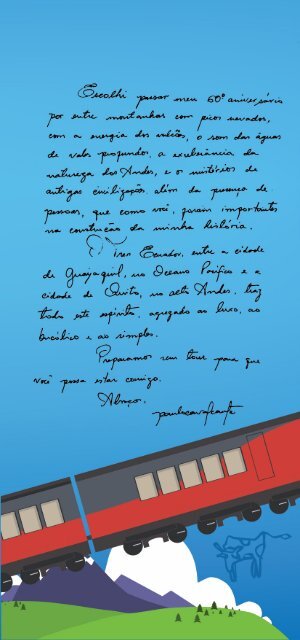 Escolhi passar meu 60º aniversário
por entre montanhas com picos nevados,
com a energia dos vulcões, o som das águas
de vales profundos, a exuberância da
natureza dos Andes, e os mistérios de
antigas civilizações, além da presença de
pessoas, que como você, foram importantes
na construção da minha história.
Trem Ecuador, entre a cidade
de Guayaquil, no Oceano Pacífico e a
cidade de Quito, no alto Andes, traz
todo este espírito, agregado ao luxo, ao
bucólico e ao simples.
Preparamos um tour para que
você possa estar comigo.
Abraço.
paulacavalcante